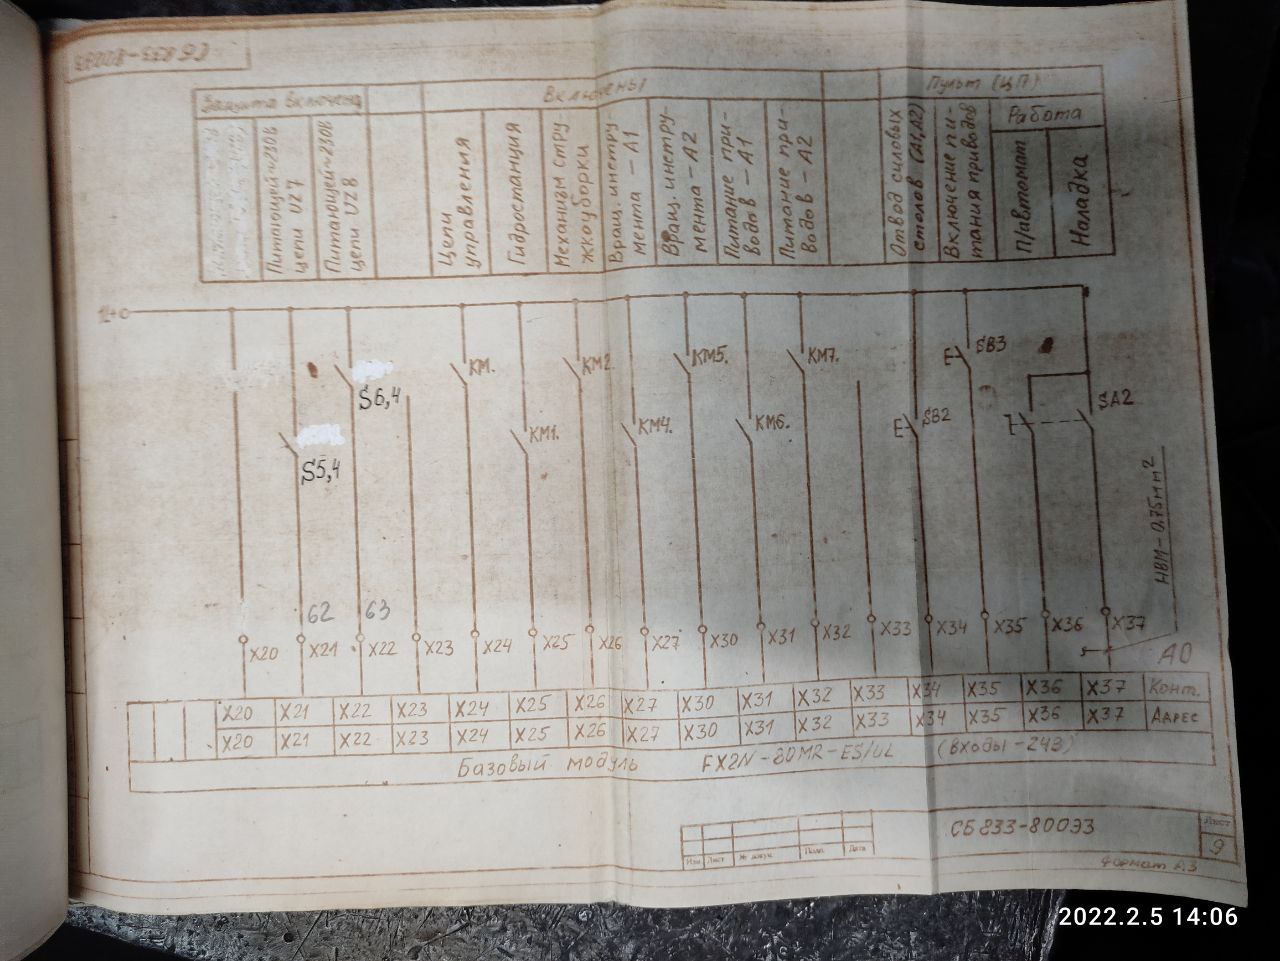 СБ 833-800Э3
Защита включена
Включены
Пульт (ЦП)
Работа
Питающей ~230В
цепи UZ7
Питающей ~230В
цепи UZ8
Цепи
управления
Гидростанция
Механизм стру-
жкоуборки
Вращ. инстру-
мента - А1
Вращ. инстру-
мента - А2
Питание при-
водов - А1
Питание при-
водов - А2
Отвод силовых
столов (А1, А2)
Включение пи-
тания приводов
П/автомат
Наладка
SB3
КМ. КМ2 КМ5. КМ7.
S6,4
SA2
SB2
КМ1. КМ4. КМ6.
S5,4
НВМ-0,75мм2
62 63
X20 X21 X22 X23 X24 X25 X26 X27 X30 X31 X32 X33 X34 X35 X36 X37
А0
X20 X21 X22 X23 X24 X25 X26 X27 X30 X31 X32 X33 X34 X35 X36 X37 Конт.
X20 X21 X22 X23 X24 X25 X26 X27 X30 X31 X32 X33 X34 X35 X36 X37 Адрес
Базовый модуль FX2N-80MR-ES/UL (входы-24В)
СБ833-800Э3
Лист
9
Изм Лист № докум. Подп. Дата
Формат А3
2022.2.5 14:06